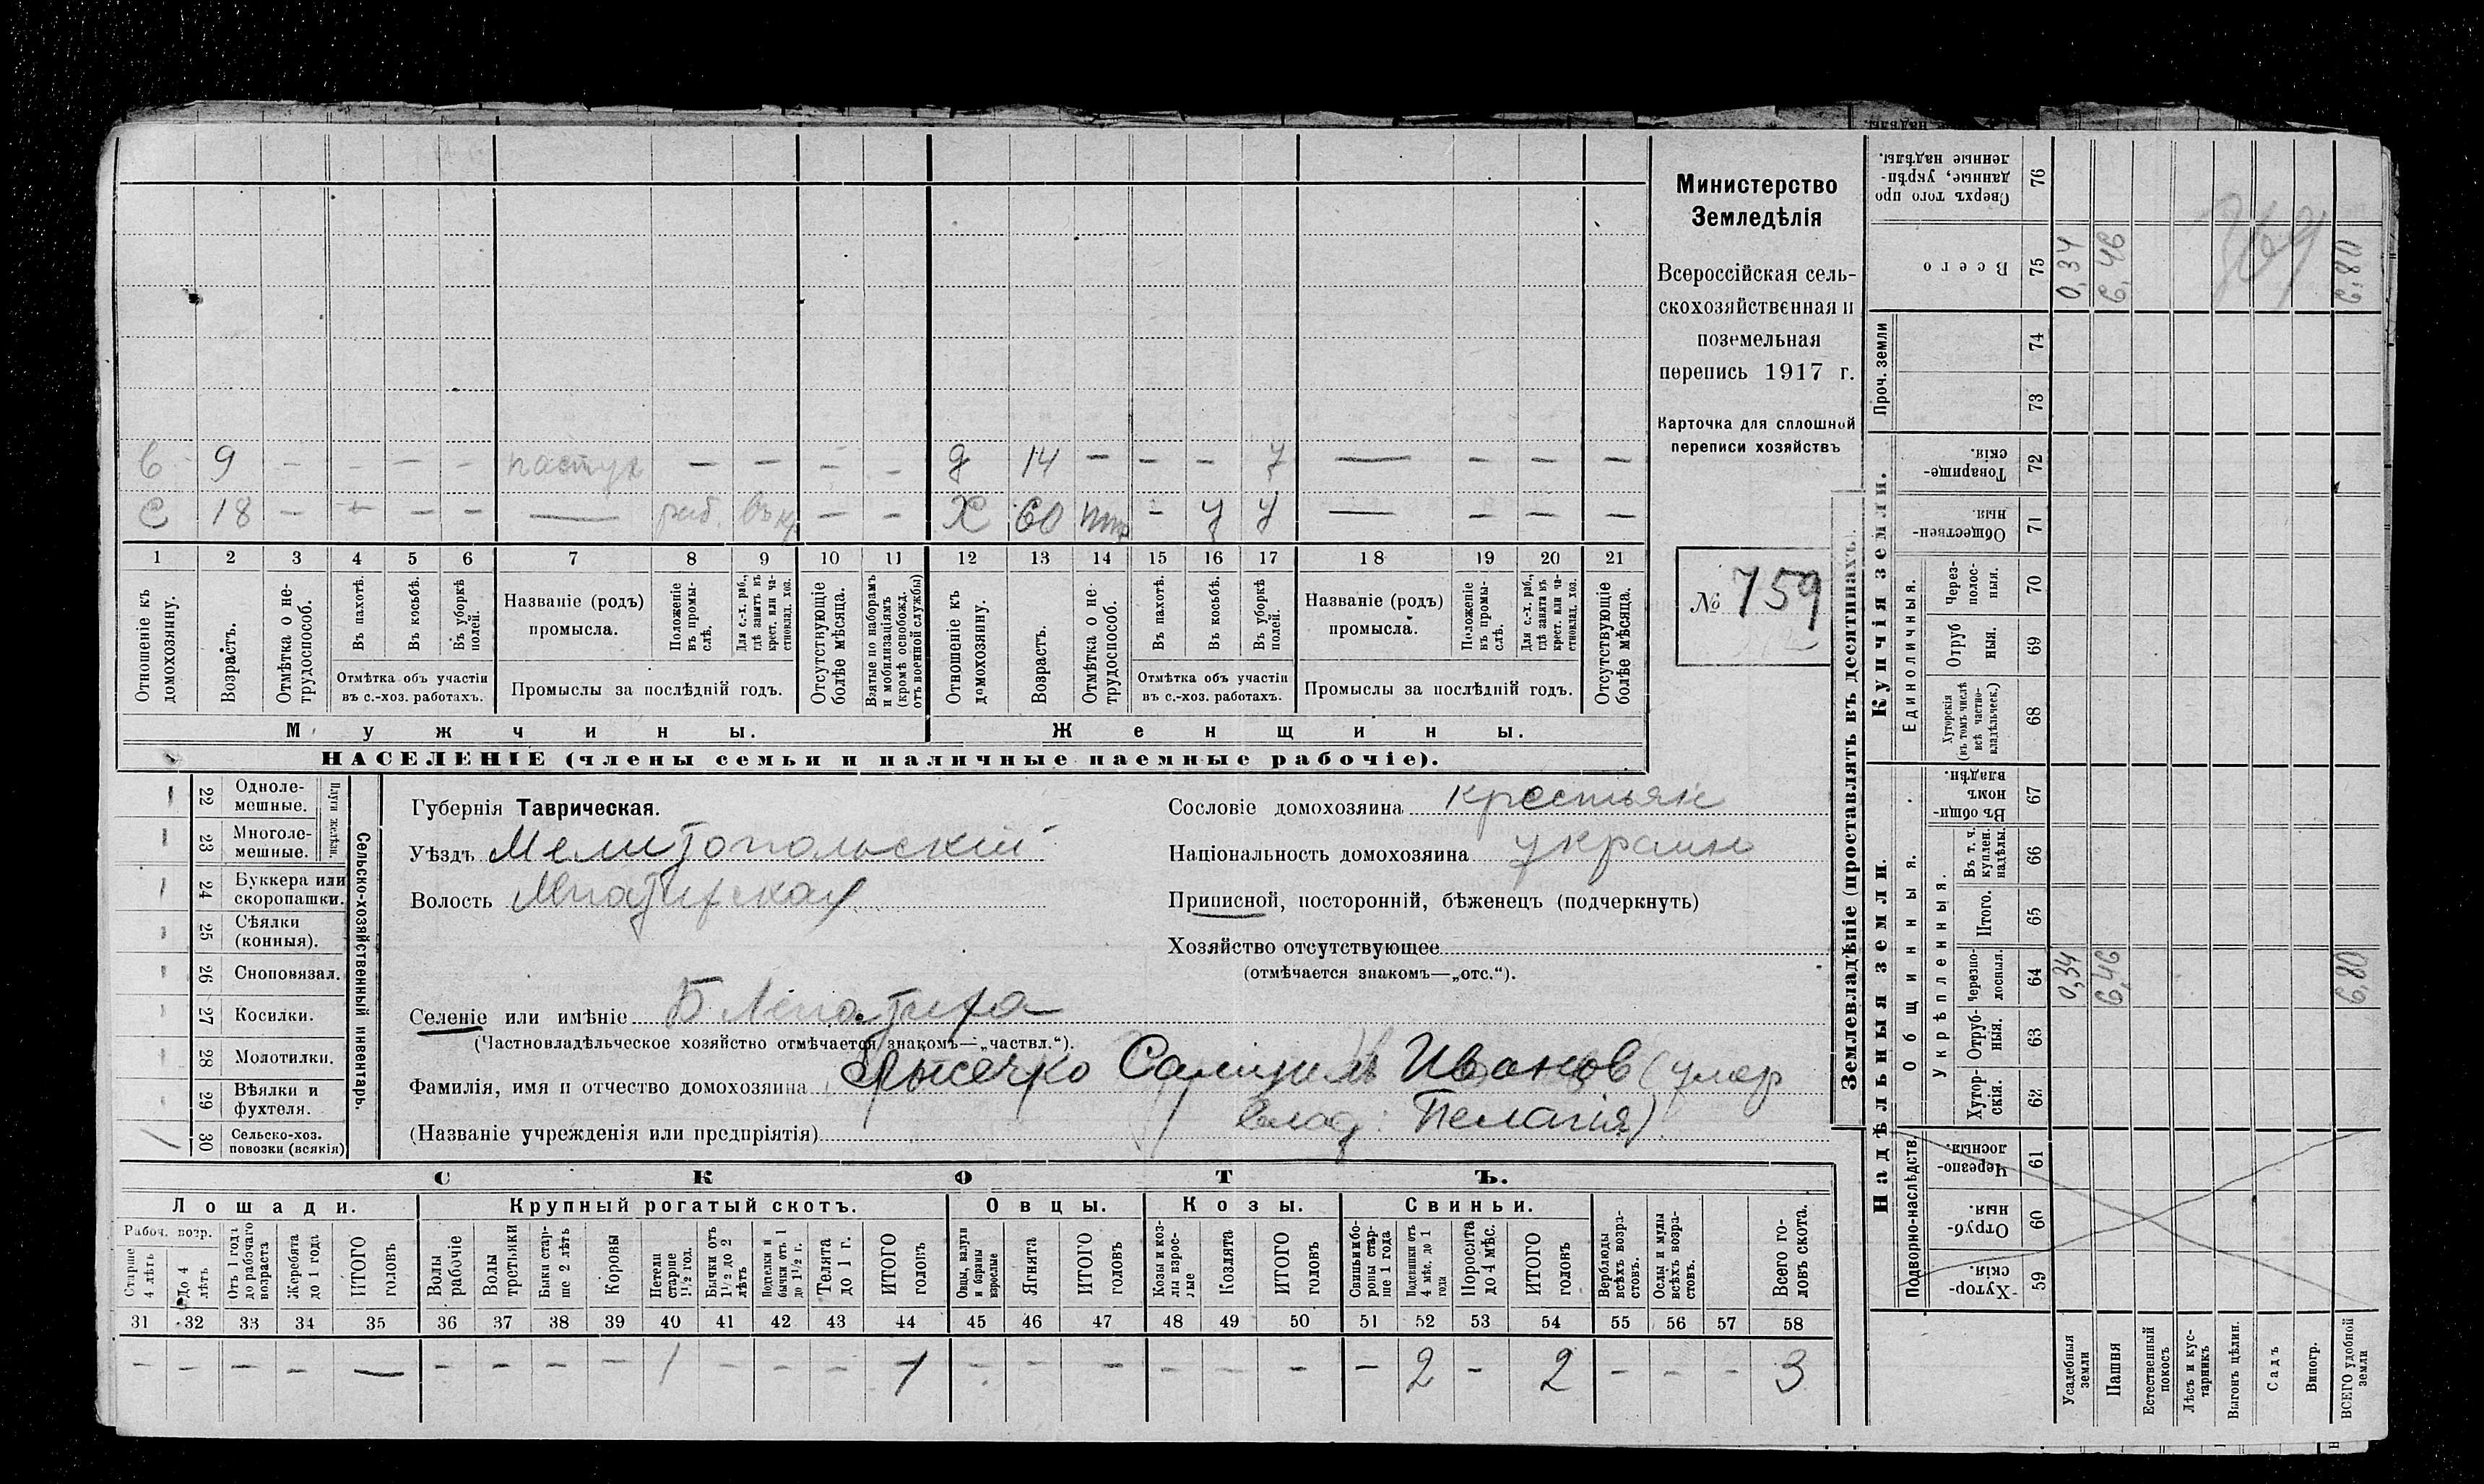 в 9 - - - - пастух - - - - д 14 - - - у — - - -
с 18 - + - - — раб. - - Х 60 - у у — - - -
1 2 3 4 5 6 7 8 9 10 11 12 13 14 15 16 17 18 19 20 21
Отношеніе къ домохозяину.
Возрастъ.
Отмѣтка о не-
трудоспособ.
Въ пахотѣ.
Въ косьбѣ.
Въ уборкѣ
полей.
Отмѣтка объ участіи
въ с.-хоз. работахъ.
Названіе (родъ)
промысла.
Положеніе
въ промы-
слѣ.
Для с.-х. раб.,
гдѣ занятъ въ
крест. или ча-
стновлад. хоз.
Промыслы за послѣдній годъ.
Отсутствующіе
болѣе мѣсяца.
Взятые по наборамъ
и мобилизаціямъ
(кромѣ освобожд.
отъ военной службы)
Отношеніе къ
домохозяину.
Возрастъ.
Отмѣтка о не-
трудоспособ.
Въ пахотѣ.
Въ косьбѣ.
Въ уборкѣ
полей.
Отмѣтка объ участіи
въ с.-хоз. работахъ.
Названіе (родъ)
промысла.
Положеніе
въ промы-
слѣ.
Для с.-х. раб.,
гдѣ занятъ въ
крест. или ча-
стновлад. хоз.
Промыслы за послѣдній годъ.
Отсутствующіе
болѣе мѣсяца.
Мужчины.
Женщины.
НАСЕЛЕНІЕ (члены семьи и наличные наемные рабочіе).
Министерство
Земледѣлія
Всероссійская сель-
скохозяйственная и
поземельная
перепись 1917 г.
Карточка для сплошной
переписи хозяйствъ
№ 759
22 Одноле-
мешные.
23 Многоле-
мешные.
Плуги желѣзн.
24 Буккера или
скоропашки.
25 Сѣялки
(конныя).
26 Сноповязал.
27 Косилки.
28 Молотилки.
29 Вѣялки и
фухтеля.
30 Сельско-хоз.
повозки (всякія)
Сельско-хозяйственный инвентарь.
Губернія Таврическая.
Уѣздъ Мелитопольскій
Волость Лепатихская
Селеніе или имѣніе Б Лепатиха
(Частновладѣльческое хозяйство отмѣчается знакомъ—„частвл.“).
Фамилія, имя и отчество домохозяина Самуилъ Иванов (умер
(Названіе учрежденія или предпріятія) влад: Пелагія)
Сословіе домохозяина крестьян
Національность домохозяина украин
Приписной, посторонній, бѣженецъ (подчеркнуть)
Хозяйство отсутствующее
(отмѣчается знакомъ—„отс.“).
СКОТЪ.
Лошади.
Рабоч. возр.
Старше
4 лѣтъ
До 4
лѣтъ
Отъ 1 года
до рабочаго
возраста
Жеребята
до 1 года
ИТОГО
головъ
Крупный рогатый скотъ.
Волы
рабочіе
Волы
третьяки
Быки стар-
ше 2 лѣтъ
Коровы
Нетели
старше
1½ год.
Бычки отъ
1½ до 2
лѣтъ
Подтелки и
бычки отъ 1
до 1½ г.
Телята
до 1 г.
ИТОГО
головъ
Овцы.
Овцы, валухи
и бараны
взрослые
Ягнята
ИТОГО
головъ
Козы.
Козы и коз-
лы взрос-
лые
Козлята
ИТОГО
головъ
Свиньи.
Свиньи и бо-
ровы стар-
ше 1 года
Подсвинки отъ
4 мѣс. до 1
года
Поросята
до 4 мѣс.
ИТОГО
головъ
Верблюды
всѣхъ возра-
стовъ.
Ослы и мулы
всѣхъ возра-
стовъ.
Всего го-
ловъ скота.
31 32 33 34 35 36 37 38 39 40 41 42 43 44 45 46 47 48 49 50 51 52 53 54 55 56 57 58
- - - - — - - - - 1 - - - 1 - - - - - - - 2 - 2 - - - 3
Землевладѣніе (проставлять въ десятинахъ).
Проч. земли
Купчія земли.
Единоличныя.
Надѣльныя земли.
Общинныя.
Укрѣпленныя.
Подворно-наслѣдств.
76 Сверхъ того про
данные, укрѣп-
ленные надѣлы.
75 Всего 0,34 6,46 6,80
74
73
72 Товарище-
скія.
71 Обществен-
ныя.
70 Через-
полос-
ныя.
69 Отруб
ныя.
68 Хуторскія
(въ томъ числѣ
всѣ частно-
владѣльческ.)
67 Въ общи
номъ
владѣн.
66 Въ т. ч.
куплен.
надѣлы.
65 Итого.
64 Черезпо-
лосныя. 0,34 6,46 6,80
63 Отруб-
ныя.
62 Хутор-
скія.
61 Черезпо-
лосныя.
60 Отруб-
ныя.
59 Хутор-
скія.
Усадебныя
земли
Пашня
Естественный
покосъ
Лѣсъ и кус-
тарникъ
Выгонъ цѣлин.
Садъ
Виногр.
ВСЕГО удобной
земли
369